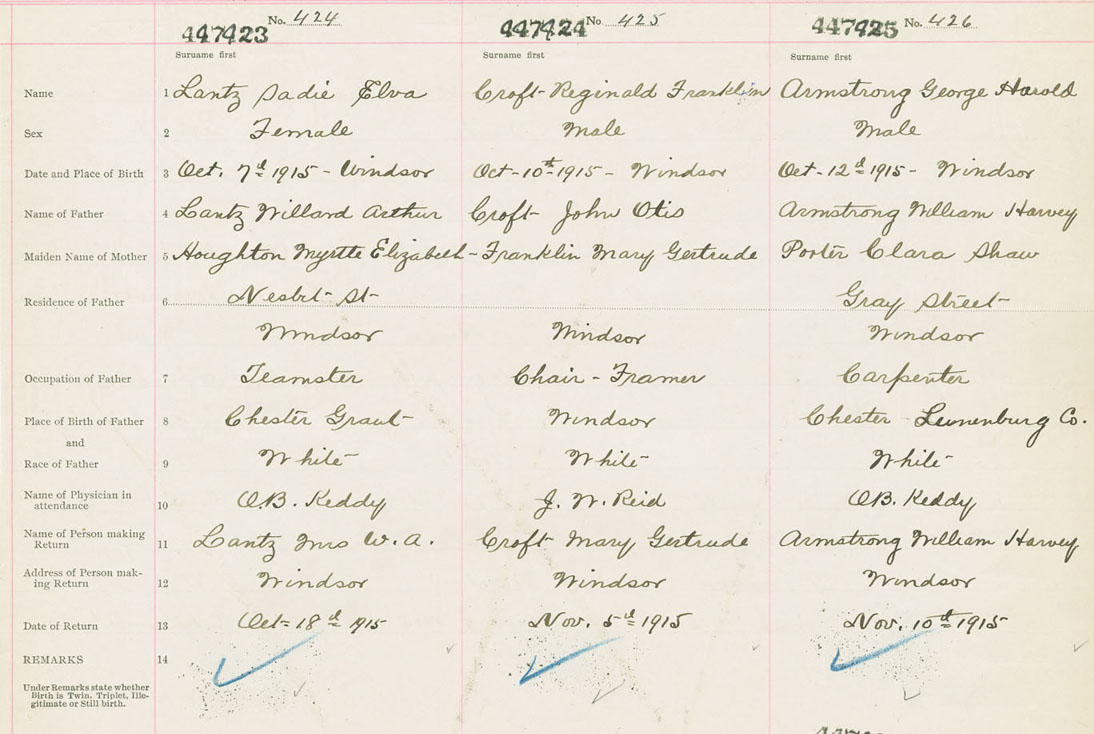 No. 424 No 425 No. 426
447423 447424 447425
Surname first Surname first Surname first
Name 1 Lantz Sadie Elva Croft- Reginald Franklin Armstrong George Harold
Sex 2 Female Male Male
Date and Place of Birth 3 Oct. 7th 1915 - Windsor Oct-10th 1915 - Windsor Oct-12th 1915 - Windsor
Name of Father 4 Lantz Willard Arthur Croft- John Otis Armstrong William Harvey
Maiden Name of Mother 5 Houghton Myrtle Elizabeth - Franklin Mary Gertrude Porter Clara Shaw
Residence of Father 6 Nesbit- St- Gray Street-
Windsor Windsor Windsor
Occupation of Father 7 Teamster Chair - Framer Carpenter
Place of Birth of Father 8 Chester Grant- Windsor Chester - Lunenburg Co.
and
Race of Father 9 White White White
Name of Physician in
attendance 10 O.B. Keddy J. W. Reid O.B. Keddy
Name of Person making
Return 11 Lantz Mrs W. A. Croft- Mary Gertrude Armstrong William Harvey
Address of Person mak-
ing Return 12 Windsor Windsor Windsor
Date of Return 13 Oct- 18th 1915 Nov. 5th 1915 Nov. 10th 1915
REMARKS 14
Under Remarks state whether
Birth is Twin, Triplet, Ille-
gitimate or Still birth.